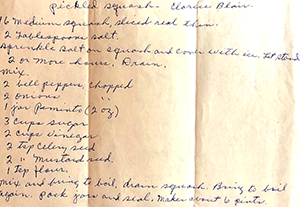 Pickled squash. Clarice Blair.
16 Medium squash, sliced real thin.
2 Tablespoons salt.
Sprinkle salt on squash and cover with ice. Let stand
2 or more hours. Drain.
Mix.
2 bell peppers, chopped
2 onions "
1 jar Pamento (2 oz)
3 cups sugar
2 cups vinegar
2 tsp Celery seed
2 " Mustard seed.
1 tsp flour.
Mix and bring to boil, drain squash. Bring to boil
again. Pack jars and seal. Makes about 6 pints.